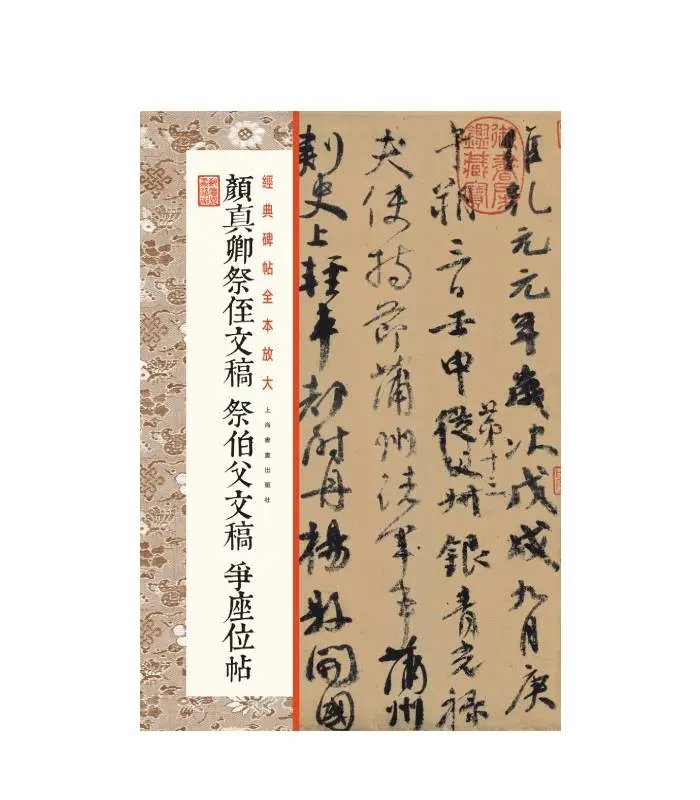 維乾元元年歲次戊戌九月庚
午朔三日壬申從父叔銀青光祿
第十三
夫使持節蒲州諸軍事蒲州
刺史上輕車都尉丹楊縣開國
御書房鑑藏寶
經典碑帖全本放大
上海書畫出版社
顏真卿祭侄文稿 祭伯父文稿 爭座位帖